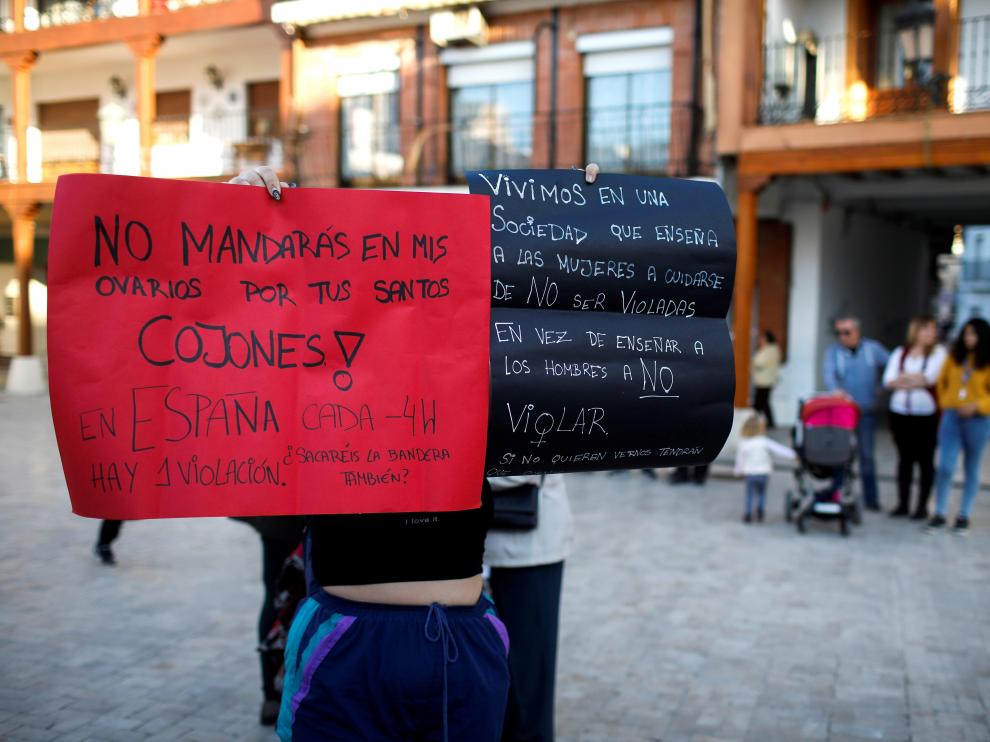 NO MANDARÁS EN MIS
OVARIOS POR TUS SANTOS
COJONES!
EN ESPAÑA CADA 4H
HAY 1 VIOLACIÓN. ¿SACARÉIS LA BANDERA
TAMBIÉN?
VIVIMOS EN UNA
SOCIEDAD QUE ENSEÑA
A LAS MUJERES A CUIDARSE
DE NO SER VIOLADAS
EN VEZ DE ENSEÑAR A
LOS HOMBRES A NO
VIOLAR.
SI NO QUIEREN VERNOS TENDRÁN
QUE
I love it.